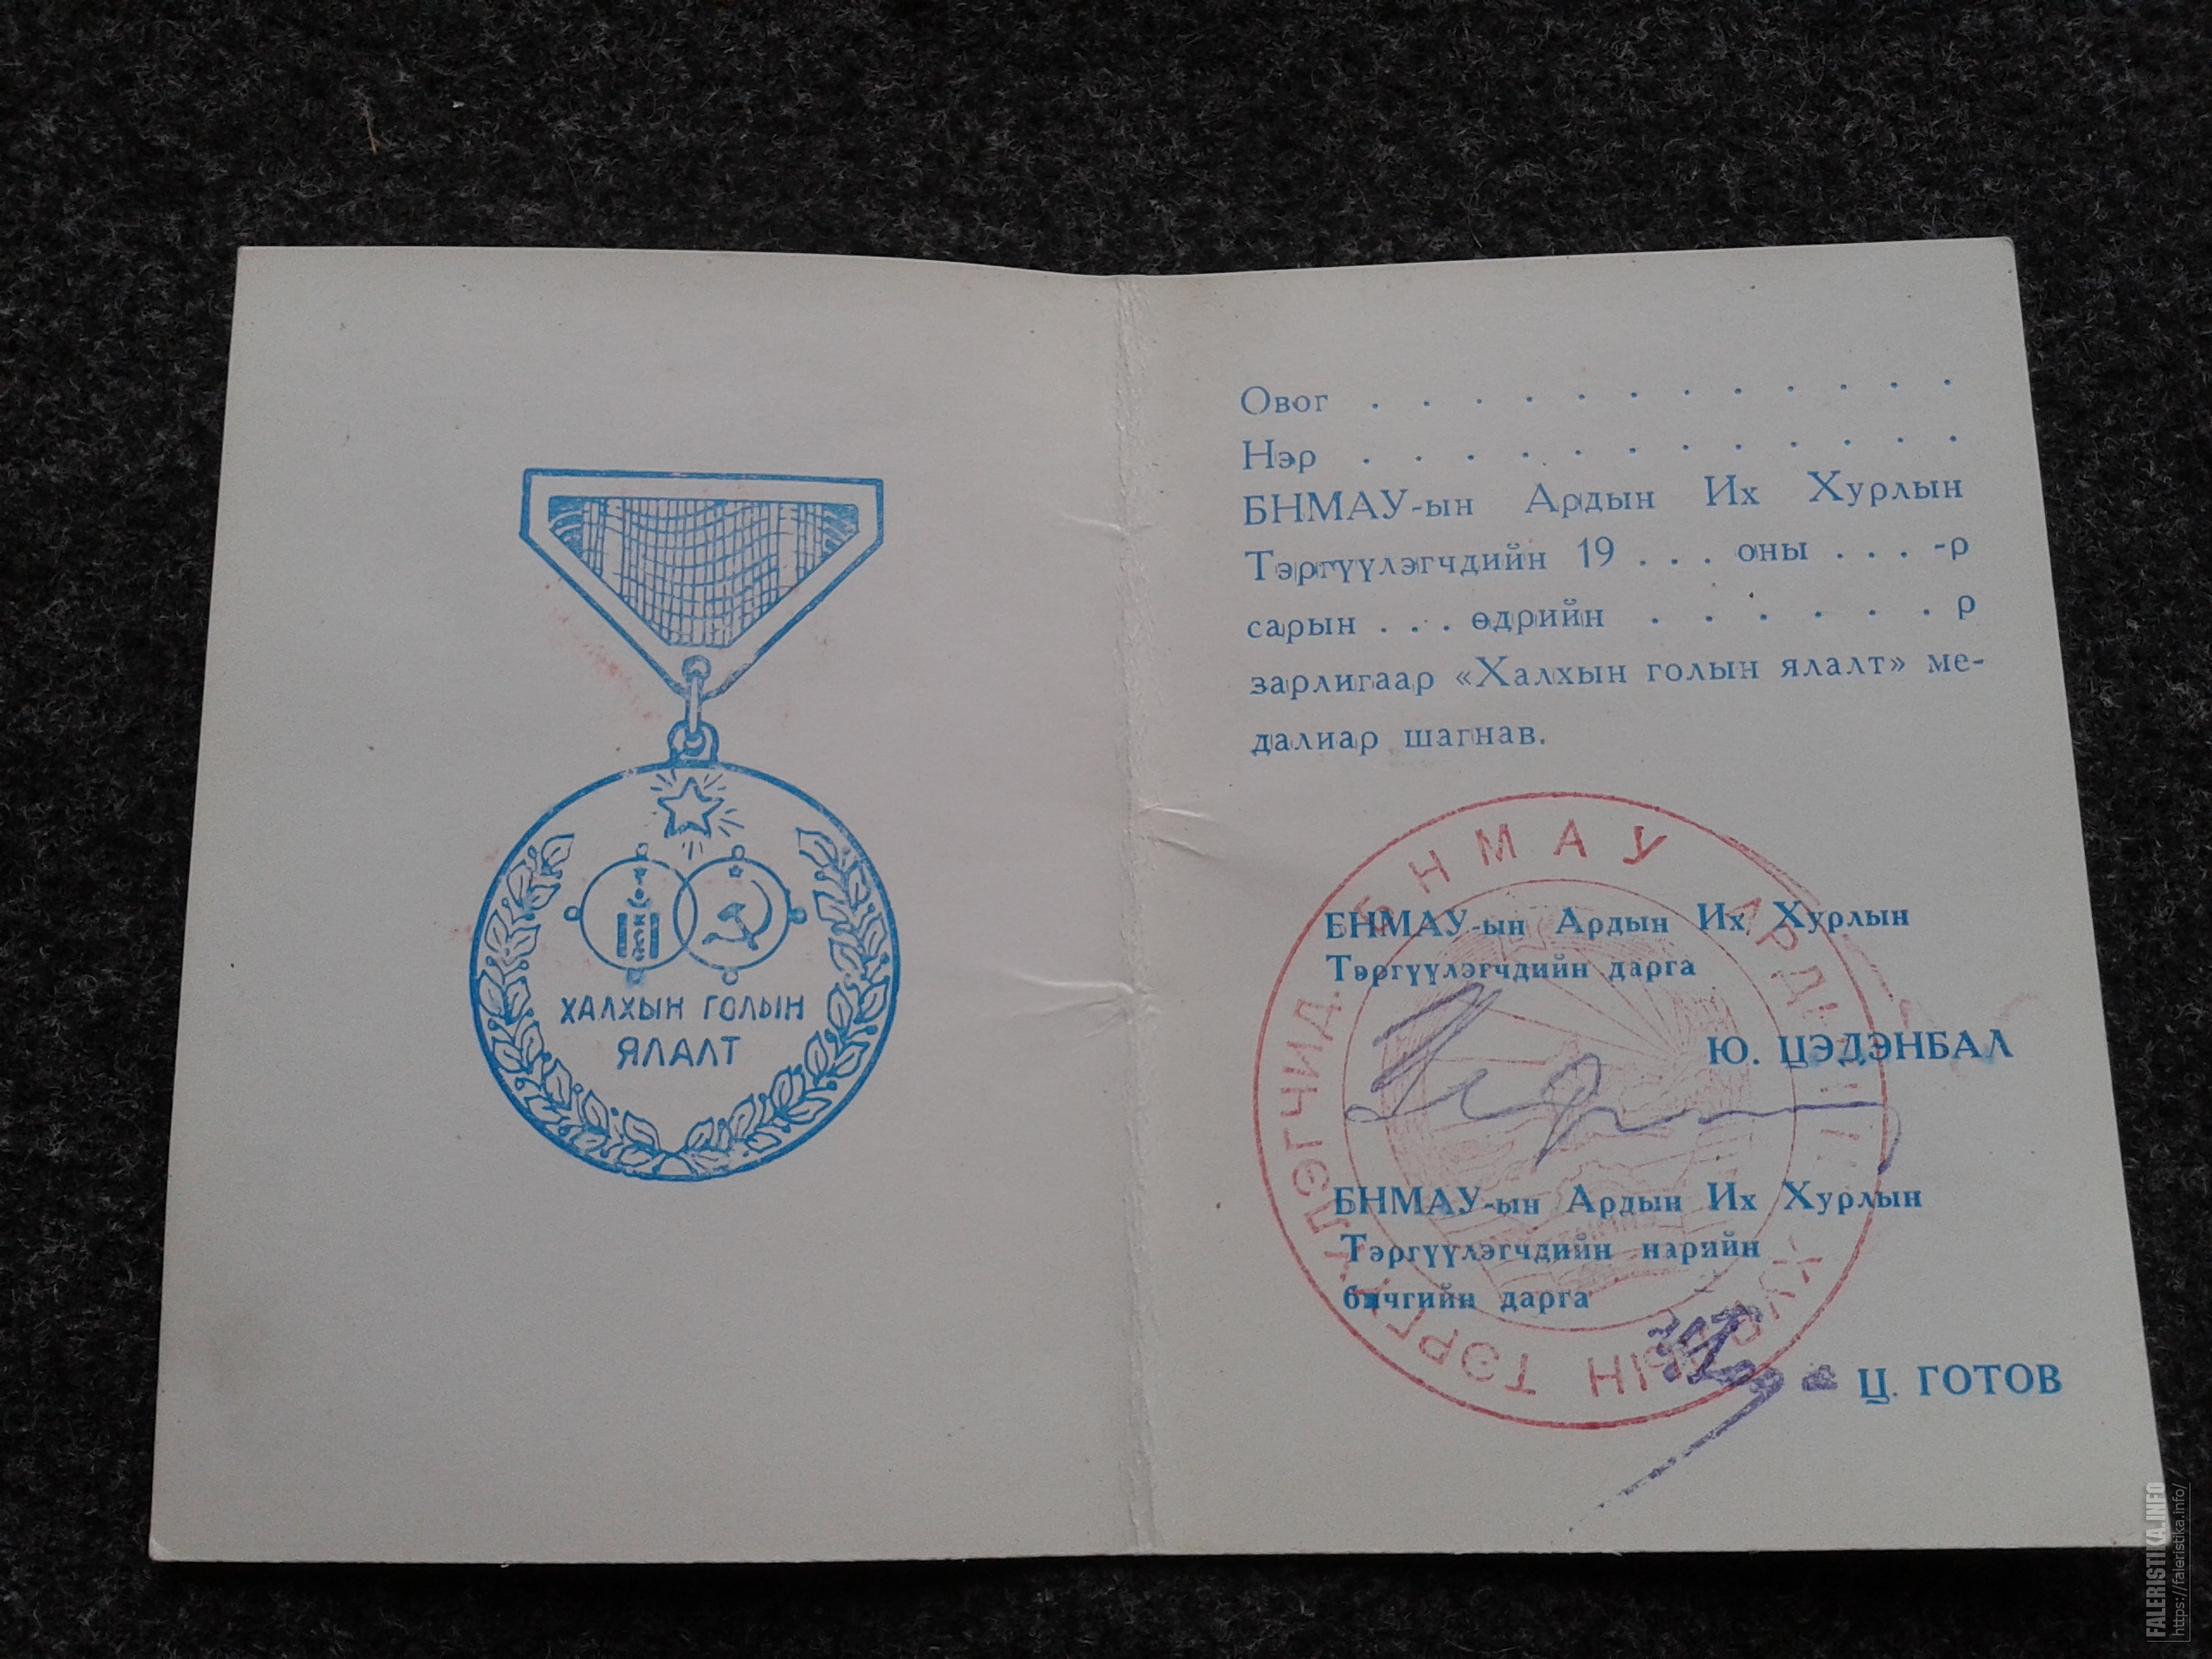 ХАЛХЫН ГОЛЫН
ЯЛАЛТ
Овог . . . . . . . . . . . .
Нэр . . . . . . . . . . . .
БНМАУ-ын Ардын Их Хурлын
Тэргүүлэгчдийн 19 . . . оны . . . -р
сарын . . . өдрийн . . . . . . р
зарлигаар «Халхын голын ялалт» ме-
далиар шагнав.
БНМАУ АРДЫН ИХ ХУРЛЫН ТЭРГҮҮЛЭГЧИД
БНМАУ-ын Ардын Их Хурлын
Тэргүүлэгчдийн дарга
Ю. ЦЭДЭНБАЛ
БНМАУ-ын Ардын Их Хурлын
Тэргүүлэгчдийн нарийн
бичгийн дарга
Ц. ГОТОВ
FALERISTIKA.INFO
https://faleristika.info/